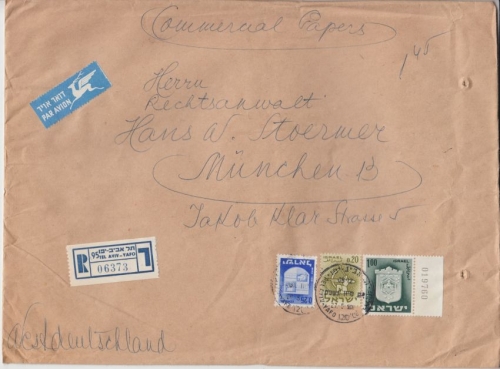 Commercial Papers
1,45
דואר אויר
PAR AVION
Herrn
Rechtsanwalt
Hans W. Stoermer
München 13
Jakob Klar Strasse 5
R
תל אביב-יפו
95 TEL AVIV - YAFO
06373
ישראל
0.20
ישראל
1.00
ISRAEL
ישראל
019760
Westdeutschland